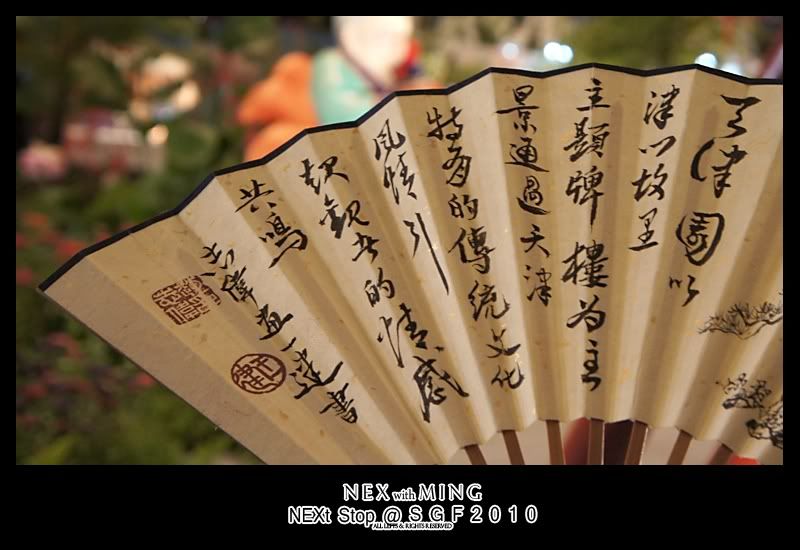 天津園以
津門故里
主題牌樓為主
景通過天津
特有的傳統文化
風情引
起觀者的情感
共鳴
志偉画並書
NEX with MING
NEXt Stop @ SGF2010
ALL LEFTS & RIGHTS RESERVED